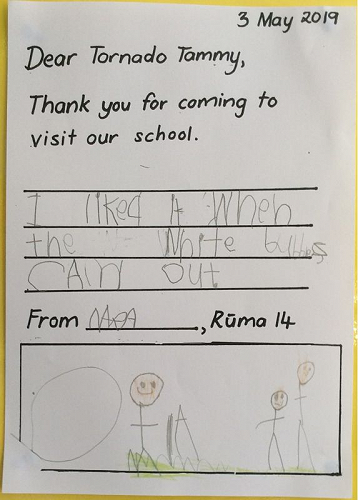 3 May 2019
Dear Tornado Tammy,
Thank you for coming to
visit our school.
I liked it when
the White
CAIN out
From , Rūma 14